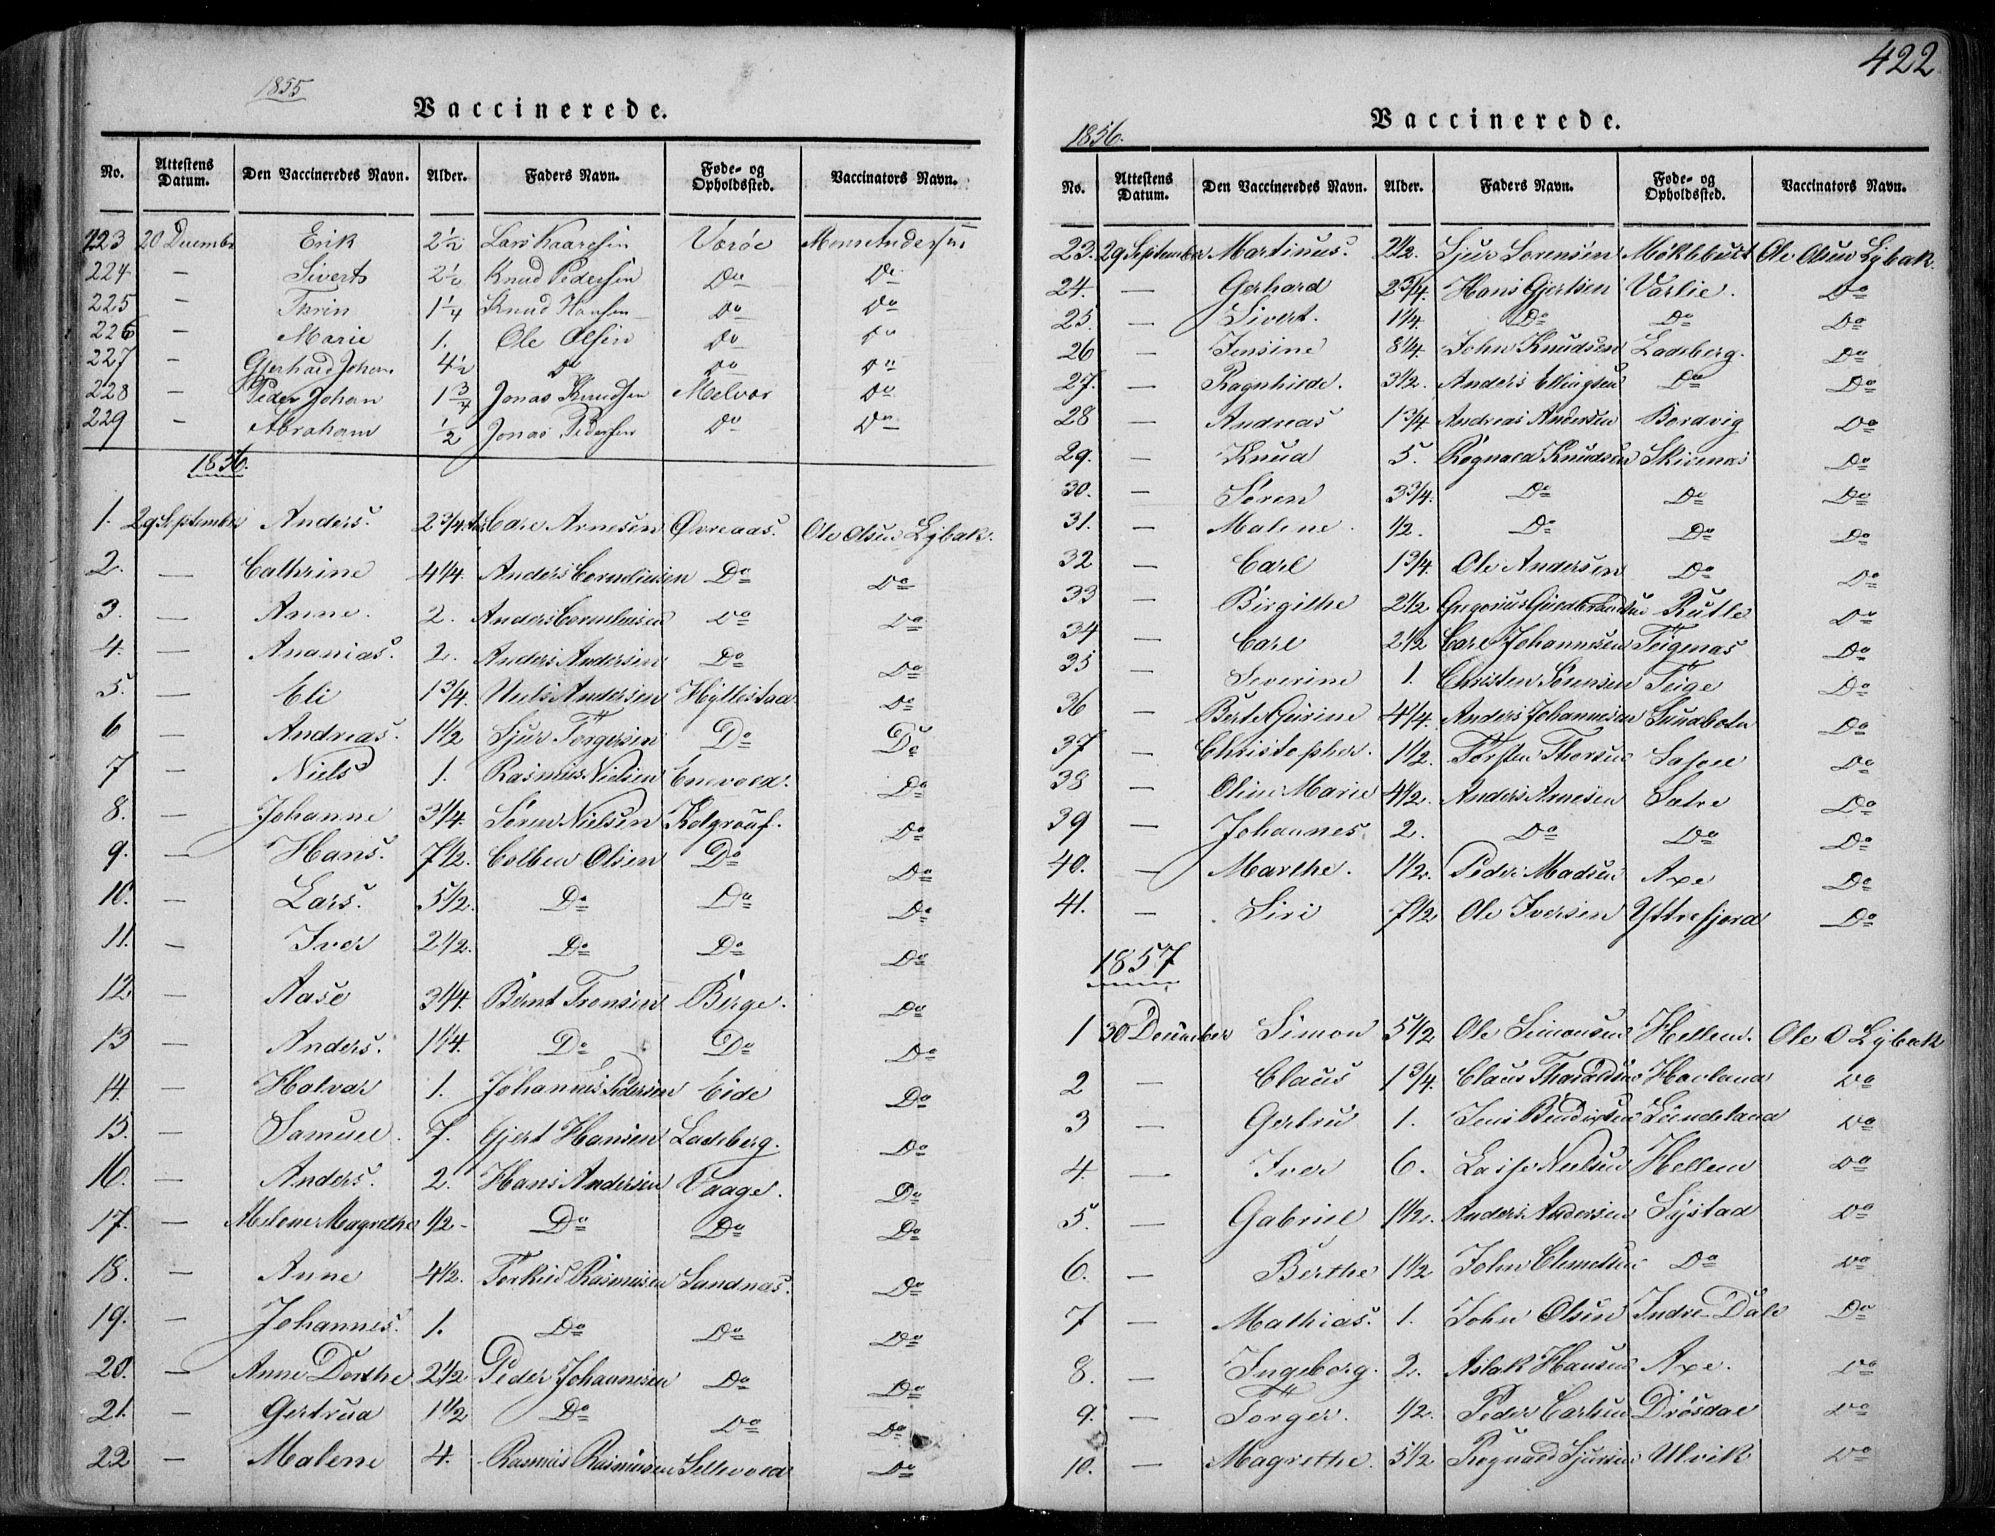 1855
Vaccinerede.
No. Attestens Datum. Den Vaccineredes Navn. Alder. Faders Navn. Føde- og Opholdssted. Vaccinators Navn.
223 20 Decembr Erik 2 1/2 Lars Værøe Mons Andersen
224 — Sivert 2 1/2 Knud Pedersen Do Do
225 — 1 1/4 Knud Hansen Do Do
226 — Marie 1. Ole Olsen Do Do
227 — Gjerhard Johan 4 1/2 Do Do Do
228 — Peder Johan 1 3/4 Jonas Knudsen Melvær Do
229 — Abraham 1/2 Jonas Pedersen Do Do
1856.
1. 29 September Anders. 2 3/4 Carl Arnesen Øvreaas. Ole Olsen Lybak.
2. — Cathrine 4 1/4. Anders Corneliusen Do Do
3. — Anne. 2. Anders Corneliusen Do Do
4. — Ananias. 2. Anders Andersen Do Do
5. — Eli 1 3/4. Niels Andersen Hyllestad Do
6 — Andreas. 1 1/2 Sjur Torgersen Do Do
7 — Niels 1. Rasmus Nielsen Enevold. Do
8. — Johanne 3 1/4. Søren Nielsen Kolgrouf. Do
9. — Hans. 7 1/2. Colben Olsen Do Do
10. — Lars. 5 1/2. Do Do Do
11. — Iver 2 1/2. Do Do Do
12 — Aase 3 1/4. Bernt Tronsen Berge. Do
13 — Anders. 1 1/4. Do Do Do
14 — Halvar 1. Johannes Pedersen Eide Do
15. — Samuel. 7. Gjert Hansen Ladeberg. Do
16. — Anders. 2. Hans Andersen Vaage. Do
17. — Melene Magrethe 1/2 - Do Do Do
18. — Anne 4 1/2. Torkild Rasmusen Sandnæs. Do
19. — Johannes. 1. Do Do Do
20. — Anne Dorthe 2 1/2 Peder Johannesen Do Do
21. — Gertrud 1 1/2 Do Do Do
22 — Malene 4. Rasmus Rasmusen Sellevold Do
422
Vaccinerede.
1856.
No. Attestens Datum. Den Vaccineredes Navn. Alder. Faders Navn. Føde- og Opholdssted. Vaccinators Navn.
23. 29 September Martinus. 2 1/2. Sjur Sørensen Møklebust Ole Olsen Lybak.
24. — Gerhard 2 3/4. Hans Gjertsen Værlie. Do
25. — Sivert. 1 1/4. Do Do Do
26 — Jensine 8 1/4. John Knudsen Ladeberg. Do
27. — Ragnhilde. 3 1/2. Anders Ellingsen Do Do
28 — Andreas 1 3/4 Andreas Andersen Bordvig Do
29. — Knud 5. Rognald Knudsen Skivenæs Do
30. — Søren 3 3/4. Do Do Do
31. — Malene. 1/2. Do Do Do
32 — Carl 1 3/4. Ole Andersen Do Do
33 — Birgithe 2 1/2. Gregorius Gulbrandsen Rutle Do
34 — Carl 2 1/2 Carl Johannesen Teigenæs Do
35 — Severine 1. Christen Sørensen Teige Do
36 — Berte Gurine 4 1/4. Anders Johannesen Sundbotn Do
37 — Christopher. 1 1/2. Torsten Thorsen Do
38 — Oline Marie 4 1/2. Anders Arnesen Sætre Do
39 — Johannes. 2. Do Do Do
40. — Marthe. 1 1/2. Peder Madsen Axe Do
41. — Siri 7 1/2 Ole Iversen Yttrefjord Do
1857
1 30 December Simon 5 1/2 Ole Simonsen Hellem. Ole O Lybak
2 — Claus 1 3/4. Claus Tharaldsen Havland Do
3 — Gertru 1. Jens Bendixsen Leindeland Do
4. — Iver 6. Lasse Nielsen Hellem Do
5. — Gabriel 1 1/2. Anders Andersen Systad Do
6. — Berthe 1 1/2 John Clemetsen Do Do
7 — Mathias. 1. John Olsen Indre Dale Do
8. — Ingeborg. 2. Aslak Hansen Axe. Do
9. — Torger. 1/2. Peder Carlsen Drøsdal Do
10. — Magrethe. 5 1/2 Rognald Sjursen Ulvik Do